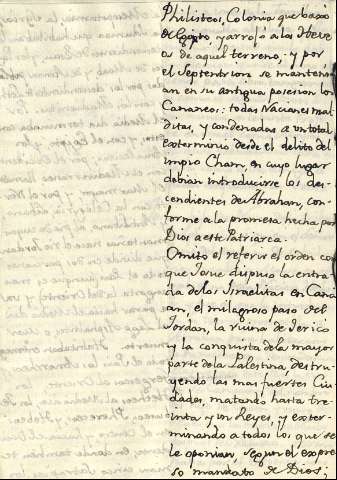 Philisteos, Colonia que baxó
de Egipto y arrojó a los Hebre
os de aquel terreno, y por
el Septentrion se manteni
an en su antigua posesion los
Cananeos: todas Naciones mal
ditas, y condenadas a un total
exterminio desde el delito del
impio Cham, en cuyo lugar
debian introducirse los des-
cendientes de Abraham, con-
forme a la promesa hecha por
Dios a este Patriarca.
Omito el referir el orden con
que Josue dispuso la entra
da de los Israelitas en Cana
an, el milagroso paso del
Jordan, la ruina de Jerico
y la conquista de la mayor
parte de la Palestina, destru-
yendo las mas fuertes Ciu
dades, matando hasta tre-
inta y un Reyes, y exter-
minando a todos los que se
le oponian, segun el expre
so mandato de Dios;